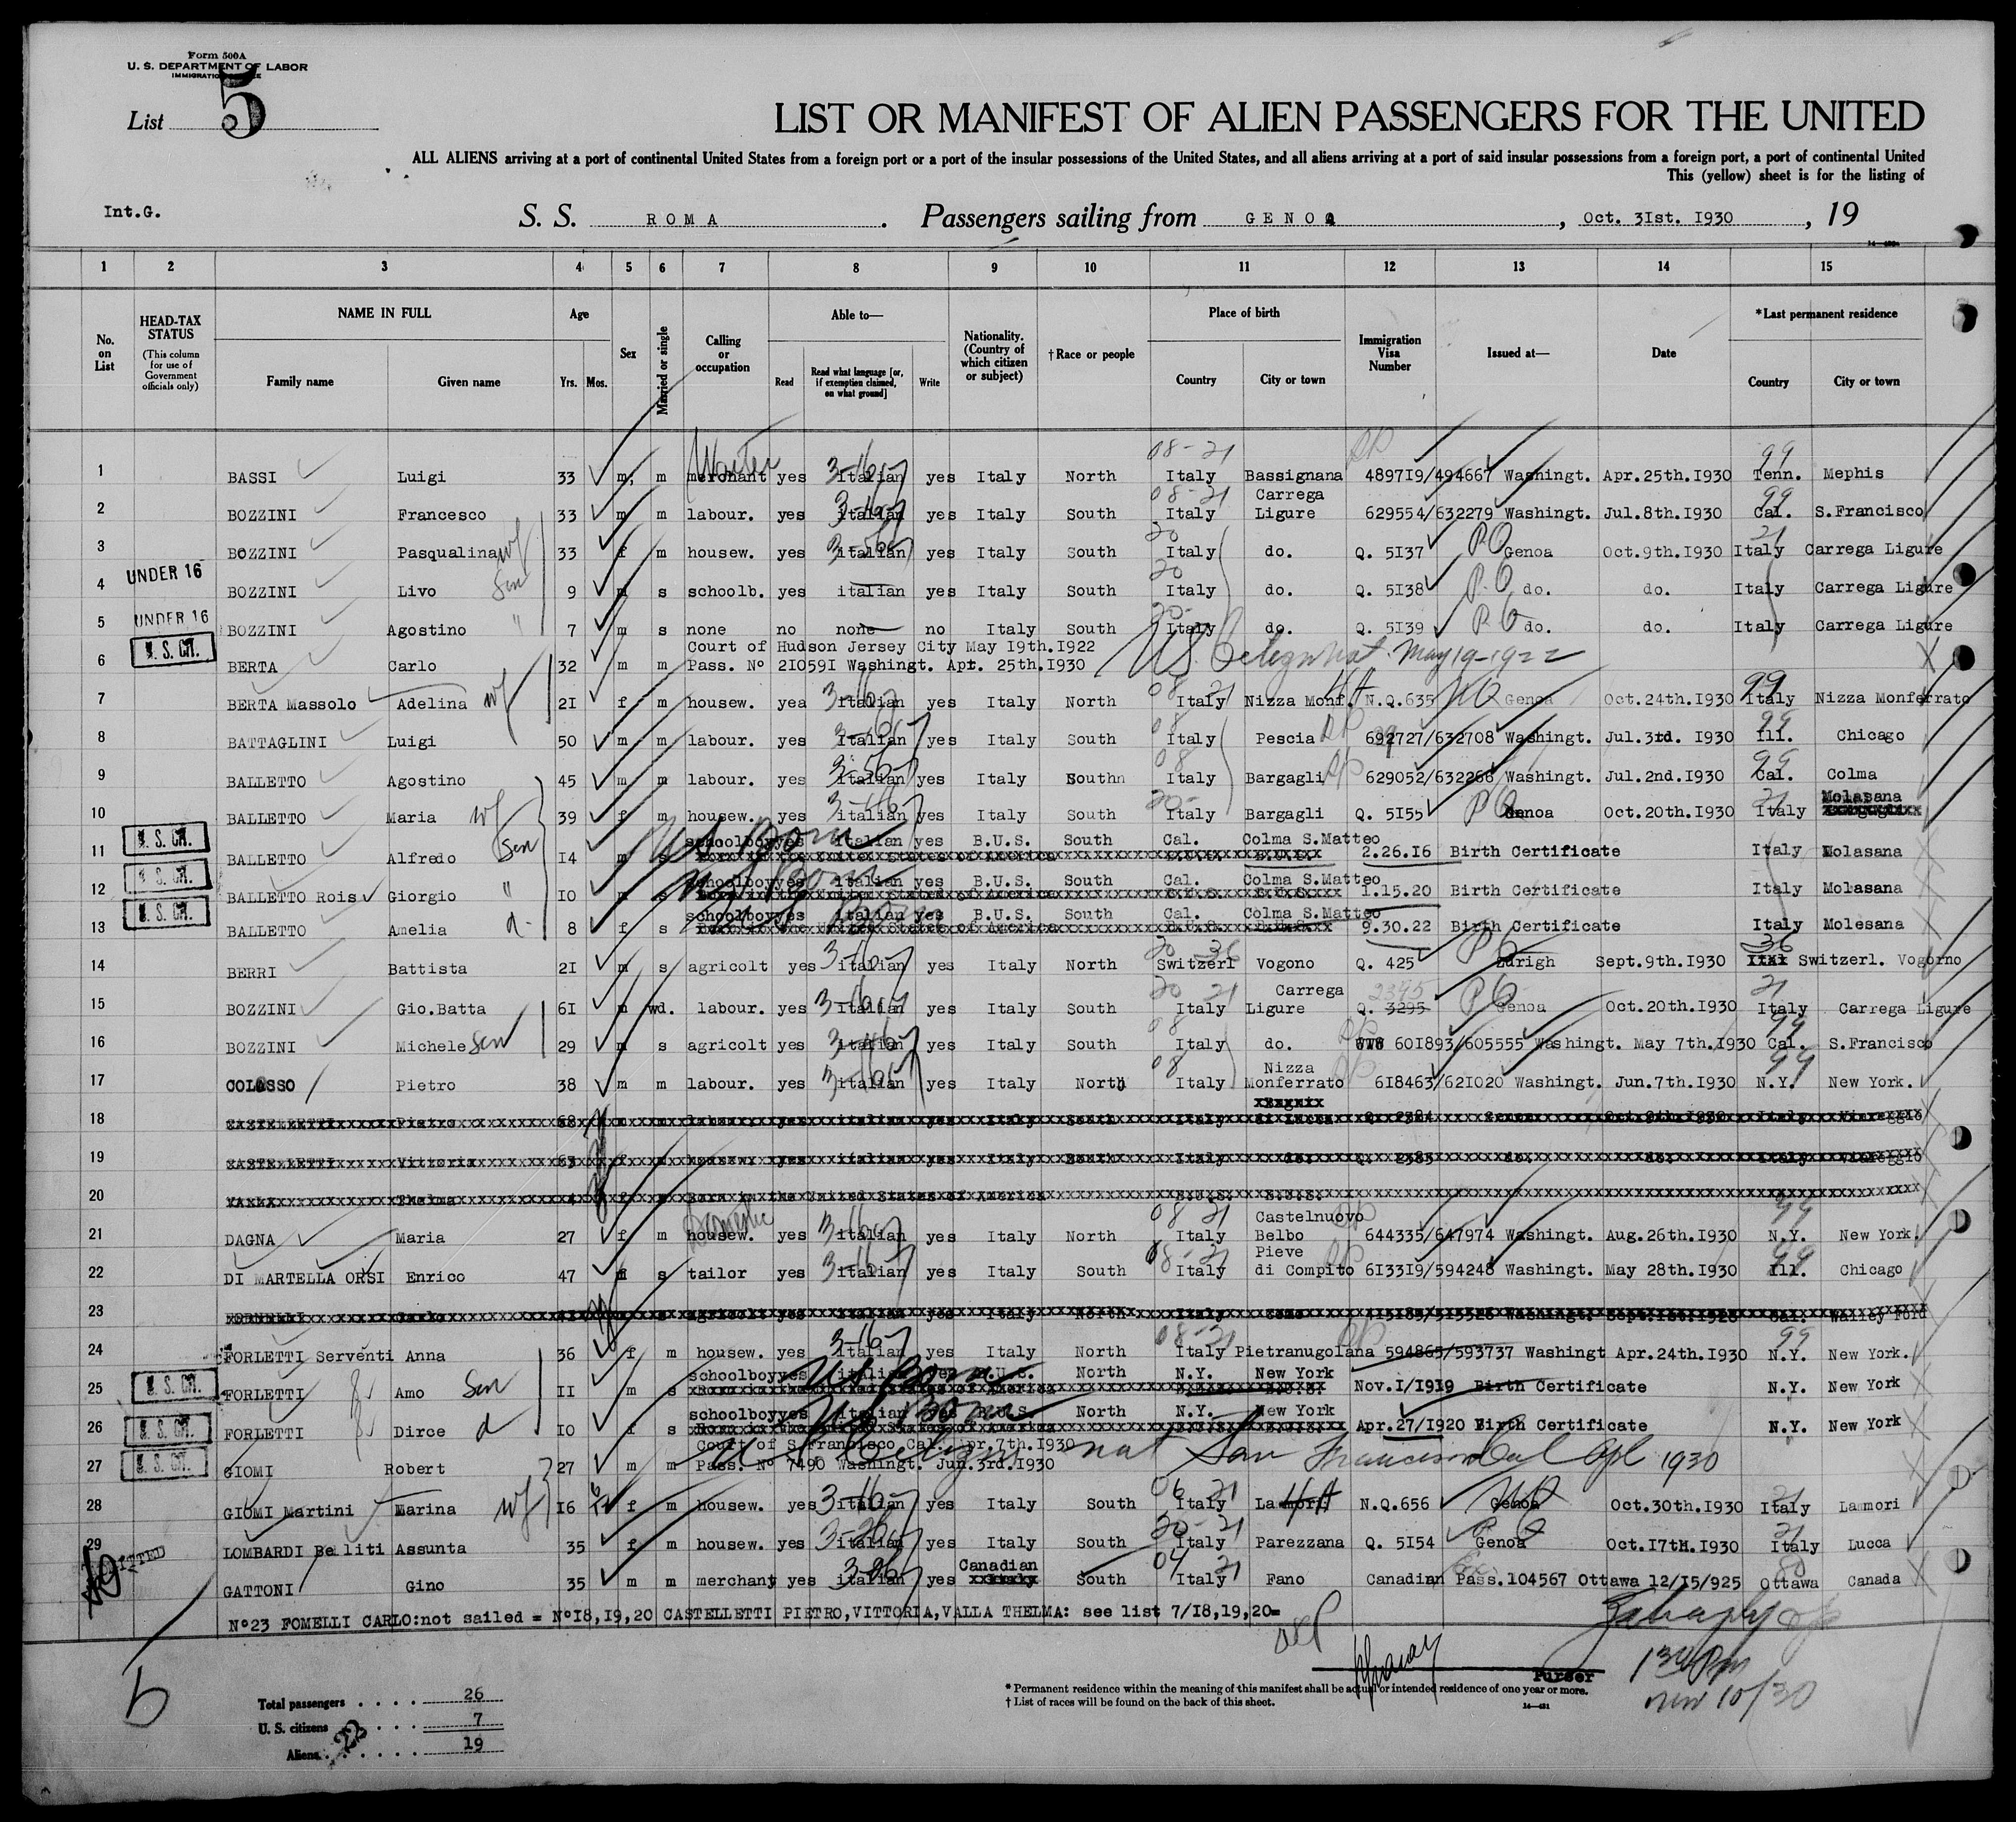 Form 500A
U. S. DEPARTMENT OF LABOR
List 5
LIST OR MANIFEST OF ALIEN PASSENGERS FOR THE UNITED
ALL ALIENS arriving at a port of continental United States from a foreign port or a port of the insular possessions of the United States, and all aliens arriving at a port of said insular possessions from a foreign port, a port of continental United
This (yellow) sheet is for the listing of
Int.G. S. S. ROMA. Passengers sailing from GENOA, Oct. 3Ist. I930, 19
1 2 3 4 5 6 7 8 9 10 11 12 13 14 15
No. on List
HEAD-TAX STATUS (This column for use of Government officials only)
NAME IN FULL Family name Given name
Age Yrs. Mos.
Sex
Married or single
Calling or occupation
Able to— Read Read what language [or, if exemption claimed, on what ground] Write
Nationality. (Country of which citizen or subject)
†Race or people
Place of birth Country City or town
Immigration Visa Number
Issued at—
Date
*Last permanent residence Country City or town
Waiter 3-16 08-21 99
1 BASSI Luigi 33 m, m merchant yes italian yes Italy North Italy Bassignana 4897I9/494667 Washingt. Apr.25th.I930 Tenn. Mephis
08-21 Carrega 99
2 BOZZINI Francesco 33 m m labour. yes italian yes Italy South Italy Ligure 629554/632279 Washingt. Jul.8th.I930 Cal. S.Francisco
20 PO 21
3 BOZZINI Pasqualina wf 33 f m housew. yes italian yes Italy South Italy do. Q. 5I37 Genoa Oct.9th.I930 Italy Carrega Ligure
UNDER 16
4 BOZZINI Livo Son 9 m s schoolb. yes italian yes Italy South Italy do. Q. 5I38 P.O. do. do. Italy Carrega Ligure
UNDER 16
5 BOZZINI Agostino " 7 m s none no none no Italy South Italy do. Q. 5I39 PO do. do. Italy Carrega Ligure
U. S. CIT. Court of Hudson Jersey City May I9th.I922
6 BERTA Carlo 32 m m Pass. No 2I059I Washingt. Apr. 25th.I930 US Citizen Nat. May 19-1922
7 BERTA Massolo Adelina wf 2I f m housew. yea italian yes Italy North Italy Nizza Monf. N.Q.635 Genoa Oct.24th.I930 Italy Nizza Monferrato
8 BATTAGLINI Luigi 50 m m labour. yes Italian yes Italy South Italy Pescia 692727/632708 Washingt. Jul.3rd. I930 Ill. Chicago
9 BALLETTO Agostino 45 m m labour. yes italian yes Italy South Italy Bargagli 629052/632266 Washingt. Jul.2nd.I930 Cal. Colma
Molasana
10 BALLETTO Maria wf 39 f m housew. yes italian yes Italy South Italy Bargagli Q. 5I55 PO Genoa Oct.20th.I930 Italy
U. S. CIT. US Born schoolboy yes italian yes B.U.S. South Cal. Colma S.Matteo
11 BALLETTO Alfredo Son I4 m s 2.26.I6 Birth Certificate Italy Molasana
U. S. CIT. US Born schoolboy yes italian yes B.U.S. South Cal. Colma S.Matteo
12 BALLETTO Rois Giorgio " I0 m s I.I5.20 Birth Certificate Italy Molasana
U. S. CIT. schoolboy yes italian yes B.U.S. South Cal. Colma S.Matteo
13 BALLETTO Amelia d. 8 f s 9.30.22 Birth Certificate Italy Molesana
14 BERRI Battista 2I m s agricolt yes italian yes Italy North Switzerl Vogono Q. 425 Zurigh Sept.9th.I930 Switzerl. Vogorno
Carrega 2395
15 BOZZINI Gio.Batta 6I m wd. labour. yes italian yes Italy South Italy Ligure Q. 3295 PO Genoa Oct.20th.I930 Italy Carrega Ligure
16 BOZZINI Michele Son 29 m s agricolt yes italian yes Italy South Italy do. 60I893/605555 Washingt. May 7th.I930 Cal. S.Francisco
Nizza
17 COLOSSO Pietro 38 m m labour. yes italian yes Italy North Italy Monferrato 6I8463/62I020 Washingt. Jun.7th.I930 N.Y. New York.
18 CASTELLETTI Pietro 68 m m labour. yes italian yes Italy South Italy di Lucca Q. 2384 Genoa Oct.9th.I930 Italy Viareggio
19 CASTELLETTI Vittoria 63 f m housew. yes italian yes Italy South Italy do. Q. 2385 do. do. Italy Viareggio
20 Thelma 4 f s Born in the United States of America B.U.S. B.U.S.
Domestic 08 21 Castelnuovo
21 DAGNA Maria 27 f m housew. yes italian yes Italy North Italy Belbo 644335/647974 Washingt. Aug.26th.I930 N.Y. New York.
Pieve
22 DI MARTELLA ORSI Enrico 47 m s tailor yes italian yes Italy South Italy di Compito 6I33I9/594248 Washingt. May 28th.I930 Ill. Chicago
23 FORNELLI Carlo m s agricolt yes italian yes Italy North Italy Como 4I5I89/5I5528 Washingt. Sept.Ist.I928 Cal. Walley Ford
24 FORLETTI Serventi Anna 36 f m housew. yes italian yes Italy North Italy Pietranugolana 594865/593737 Washingt Apr.24th.I930 N.Y. New York.
U. S. CIT. US Born schoolboy yes italian yes B.U.S. North N.Y. New York
25 FORLETTI Amo Son II m s Nov.I/I9I9 Birth Certificate N.Y. New York
U. S. CIT. US Born schoolboy yes italian yes B.U.S. North N.Y. New York
26 FORLETTI Dirce d I0 f s Apr.27/I920 Birth Certificate N.Y. New York
U. S. CIT. Court of S.Francisco Cal. Apr.7th.I930
27 GIOMI Robert 27 m m Pass. No 7490 Washingt. Jun.3rd.I930 U S Citizen nat San Francisco Cal Apl 1930
28 GIOMI Martini Marina wf I6 f m housew. yes italian yes Italy South Italy Lammori N.Q.656 Genoa Oct.30th.I930 Italy Lammori
29 LOMBARDI Belliti Assunta 35 f m housew. yes italian yes Italy South Italy Parezzana Q. 5I54 PO Genoa Oct.I7tH.I930 Italy Lucca
ADMITTED Canadian
GATTONI Gino 35 m m merchant yes italian yes South Italy Fano Canadian Pass.I04567 Ottawa I2/I5/925 Ottawa Canada
No23 FOMELLI CARLO:not sailed = NoI8,I9,20 CASTELLETTI PIETRO,VITTORIA,VALLA THELMA: see list 7/I8,I9,20=
Purser
1 30 PM
Nov 10/30
* Permanent residence within the meaning of this manifest shall be actual or intended residence of one year or more.
† List of races will be found on the back of this sheet.
Total passengers .... 26
U. S. citizens .... 7
Aliens .... 19